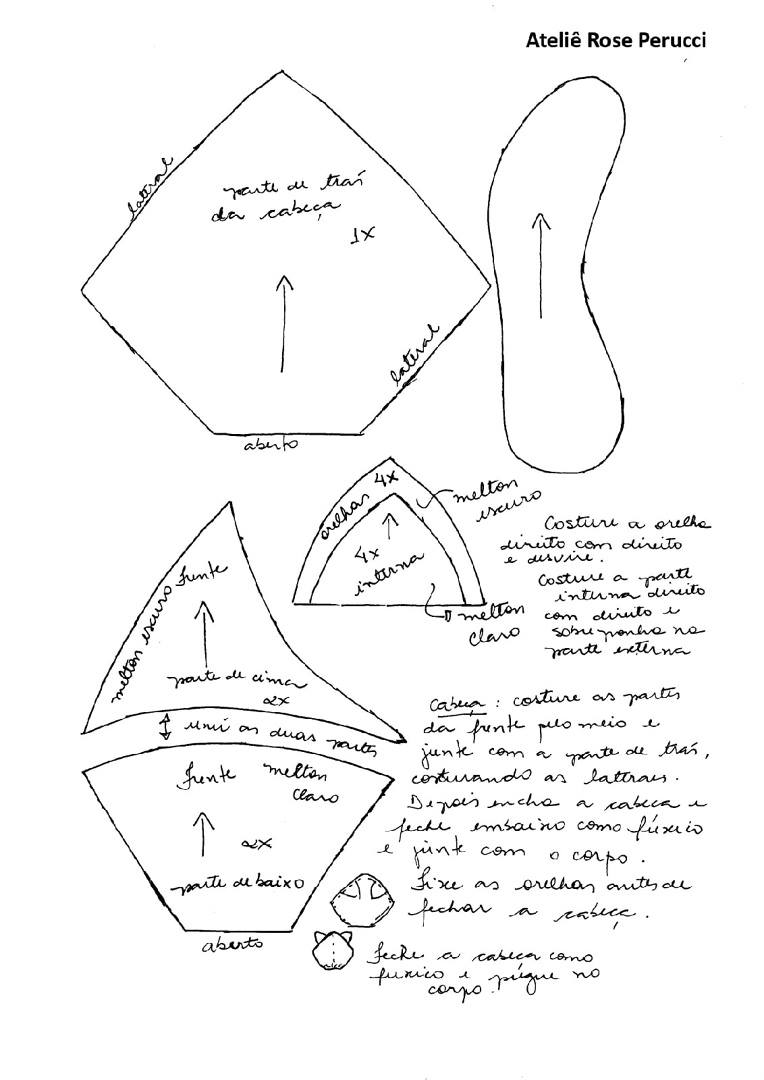 Ateliê Rose Perucci
lateral
parte de trás
da cabeça
1x
lateral
aberto
orelhas 4x
melton
escuro
4x
interna
melton
claro
Costure a orelha
direito com direito
e desvire.
Costure a parte
interna direito
com direito e
sobreponha na
parte externa
melton escuro
frente
parte de cima
2x
unir as duas partes
frente melton
claro
2x
parte de baixo
aberto
Cabeça: costure as partes
da frente pelo meio e
junte com a parte de trás,
costurando as laterais.
Depois encha a cabeça e
feche embaixo como fúxico
e junte com o corpo.
Fixe as orelhas antes de
fechar a cabeça.
Feche a cabeça como
fuxico e pregue no
corpo.